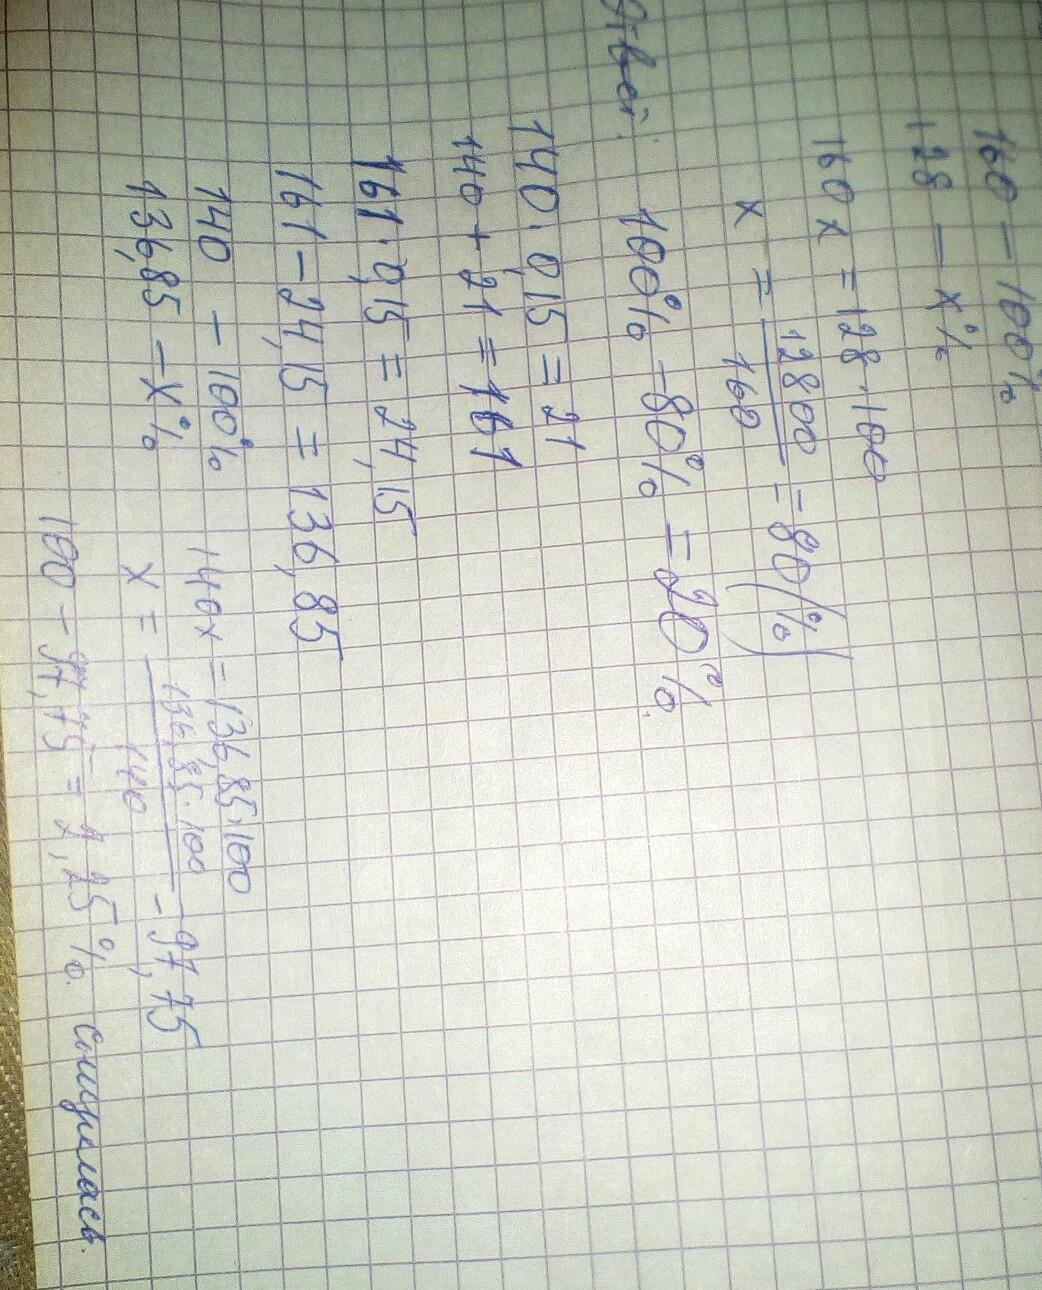 160 – 100%
128 – x%
160x = 128·100
x = 12800/160 = 80(%)
100% – 80% = 20%.
Ответ:
140·0,15 = 21
140 + 21 = 161
161·0,15 = 24,15
161 – 24,15 = 136,85
140 – 100%
136,85 – x%
140x = 136,85·100
x = 136,85·100/140 – 97,75
100 – 97,75 = 2,25%. Снизилась.